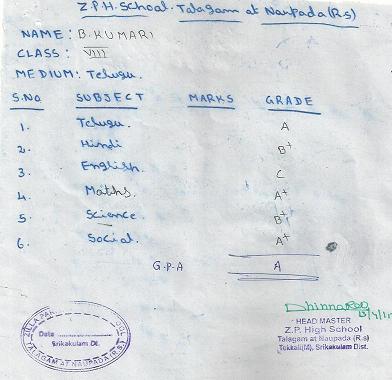 Z.P.H. School. Talagam at Naupada (R.s)
NAME : B. KUMARI
CLASS : VIII
MEDIUM: Telugu.
S.No SUBJECT MARKS GRADE
1. Telugu. A
2. Hindi B+
3. English. C
4. Maths. A+
5. Science. B+
6. Social. A+
G.P.A A
Date
Srikakulam Dt.
TALAGAM AT NAUPADA (R.S)
HEAD MASTER
Z.P. High School
Talagam at Naupada (R.s)
Tekkali(M), Srikakulam Dist.